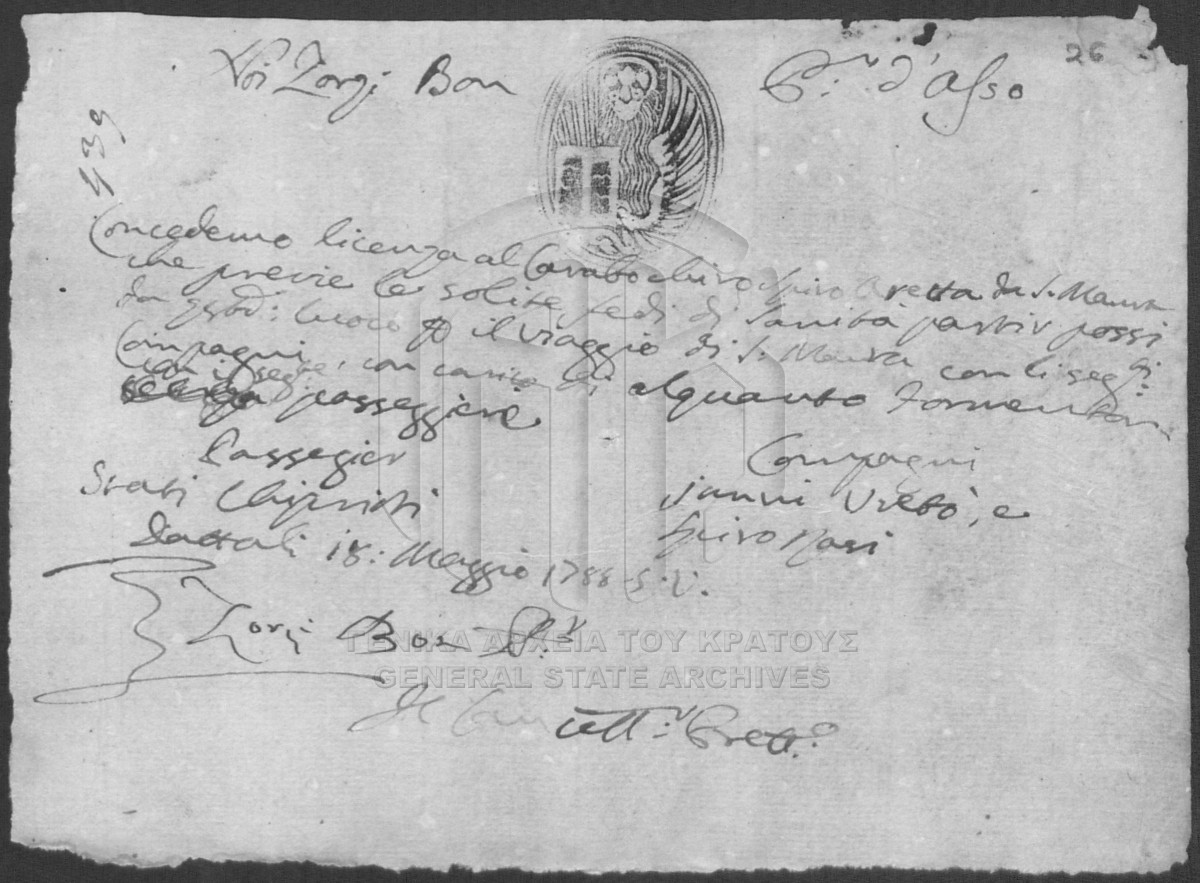 26
Noi Zorzi Bon P.r d'Asso
439
Concedemo licenza al Carabochiro Spiro Aretta da S. Maura
che previe le solite fedi di Sanità partir possi
da qsto: luoco p il viaggio di S. Maura con li seg.ti
Compagni, con carico di alquanto formenton
passeggiere
Passegier
Compagni
Stati
janni Vrettò, e
Spiro Nasi
Dattali 18: Maggio 1788 S. V.
Zorzi Bon P.r
Il Can
ΓΕΝΙΚΑ ΑΡΧΕΙΑ ΤΟΥ ΚΡΑΤΟΥΣ
GENERAL STATE ARCHIVES